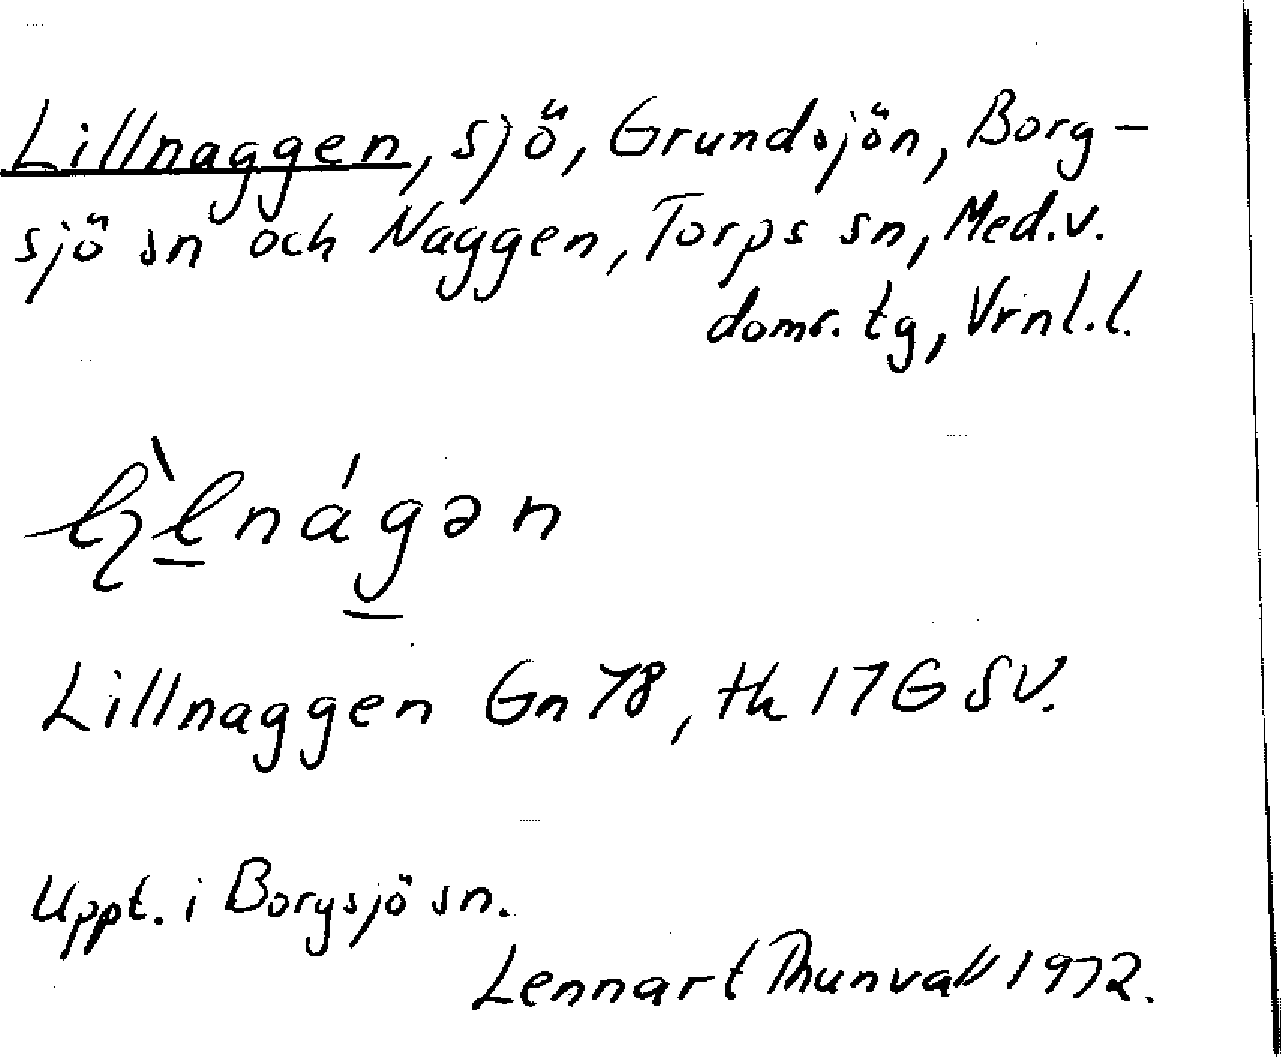 Lillnaggen, sjö, Grundsjön, Borg-
sjö sn och Naggen, Torps sn, Med.v.
domr. tg, Vrnl.l.
Lillnaggen Gn 78, tk 17G SV.
Uppt. i Borgsjö sn.
Lennart Thunvall 1972.